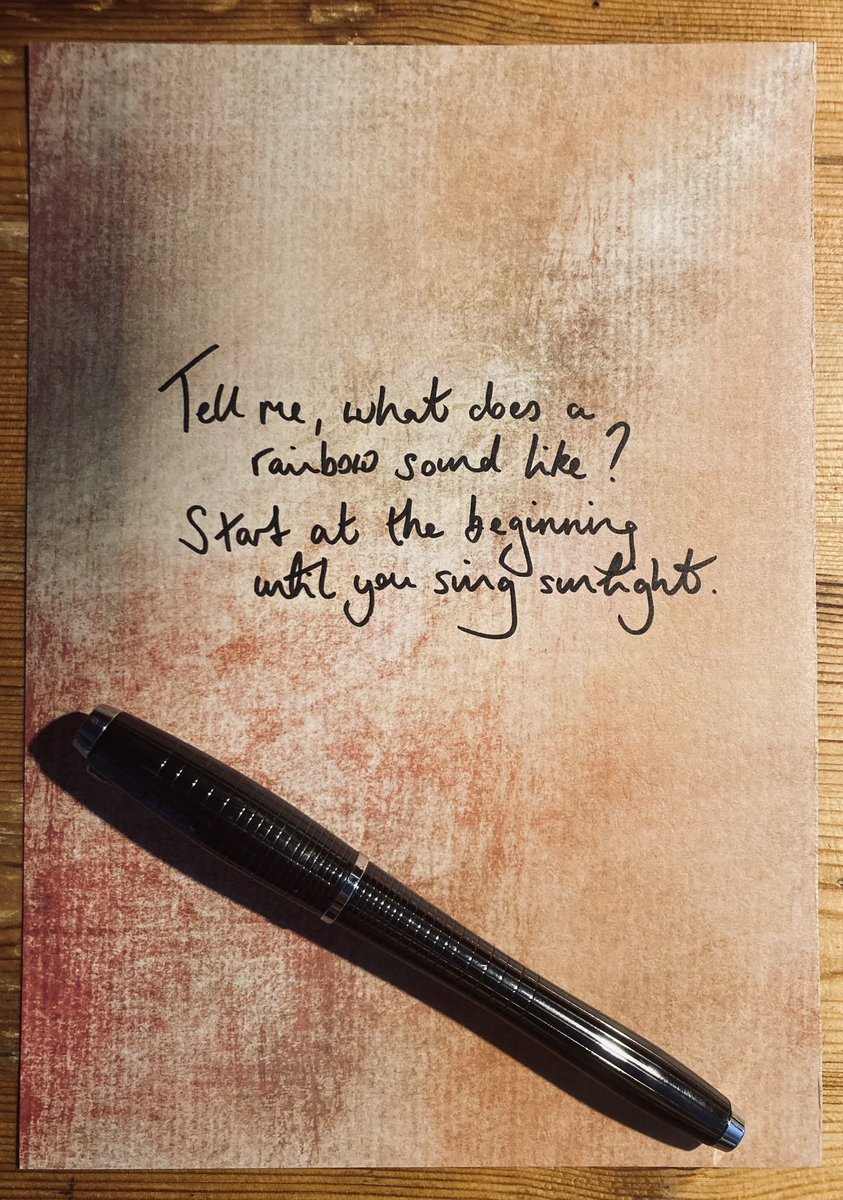 Tell me, what does a
rainbow sound like?
Start at the beginning
until you sing sunlight.